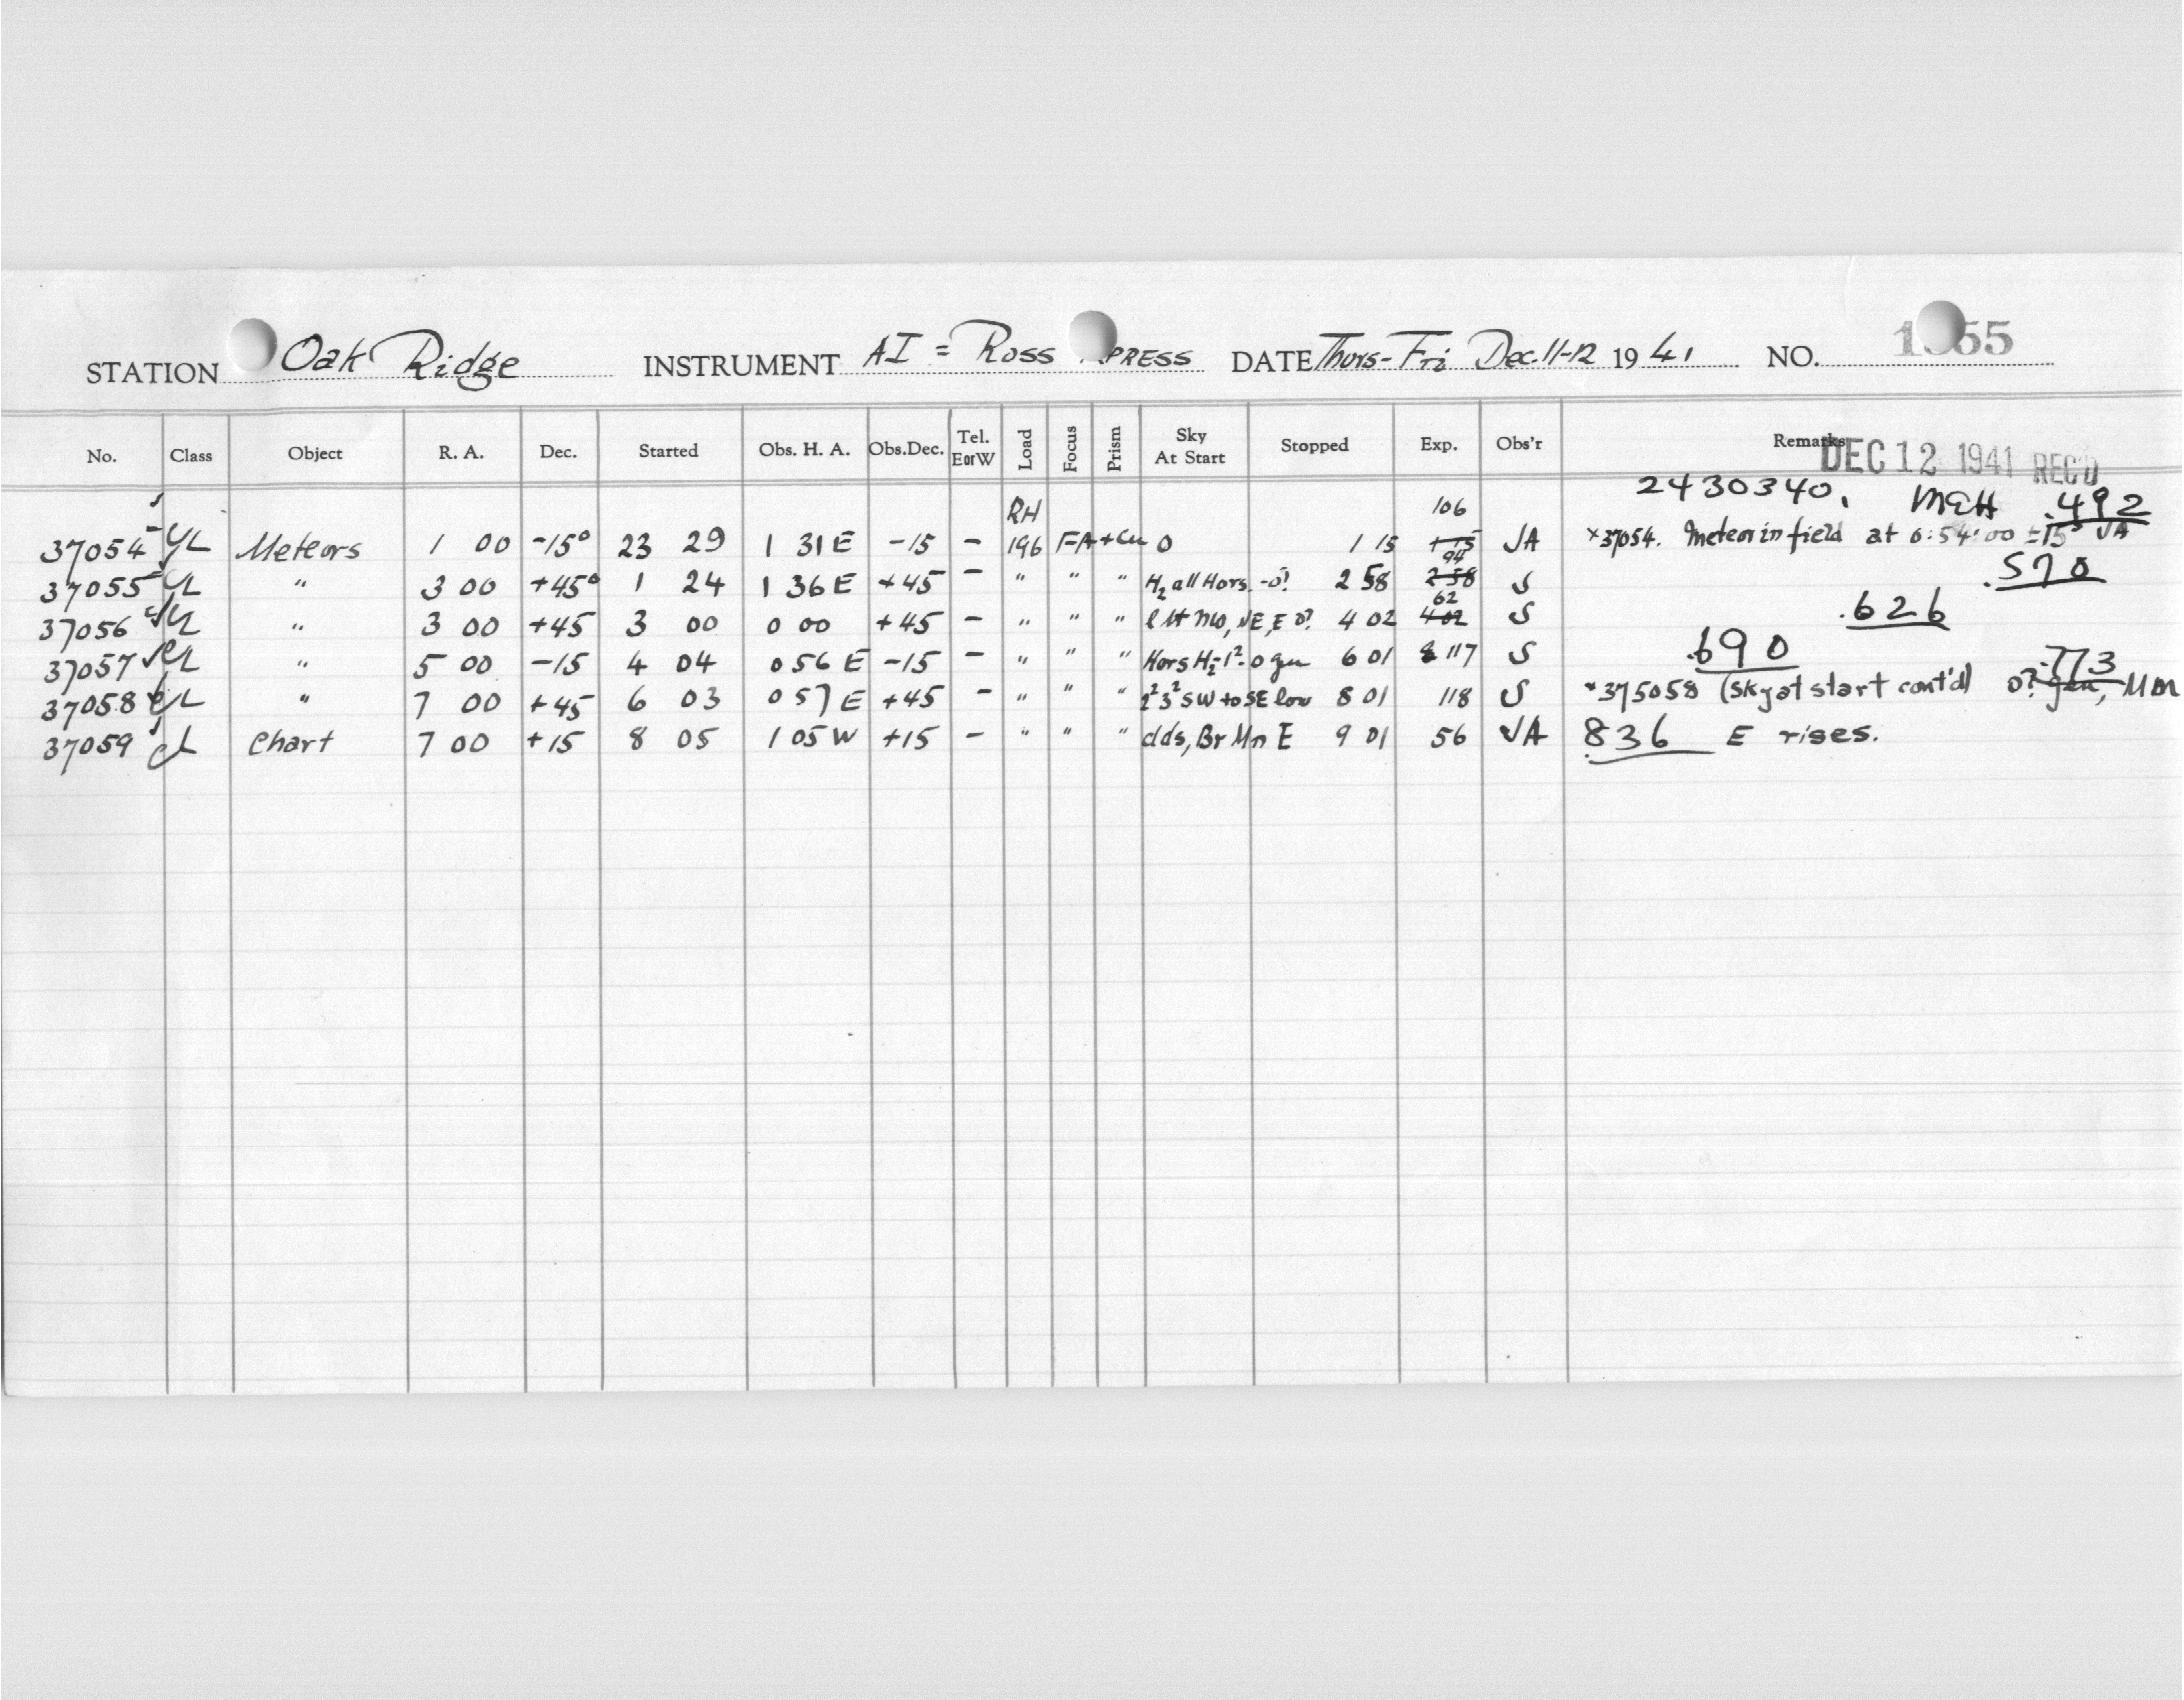 STATION Oak Ridge INSTRUMENT AI = Ross PRESS DATE Thurs-Fri Dec. 11-12 1941 NO. 1 55
No. Class Object R. A. Dec. Started Obs. H. A. Obs.Dec. Tel. EorW Load Focus Prism Sky At Start Stopped Exp. Obs'r Remarks
DEC 12 1941 REC'D
2430340. .492
RH 106
37054 Meteors 1 00 -15° 23 29 1 31 E -15 - 196 FA+Cu 0 1 15 JA *37054. Meteor in field at 0:54:00 ±15s JA
94 .570
37055 " 3 00 +45° 1 24 1 36 E +45 - " " " H2 all Hors. -0? 2 58 258 S
62 .626
37056 " 3 00 +45 3 00 0 00 +45 - " " " NE, E 0? 4 02 402 S
.690 .773
37057 " 5 00 -15 4 04 0 56 E -15 - " " " Hors 0 gen 6 01 117 S
37058 " 7 00 +45 6 03 0 57 E +45 - " " " SW to SE low 8 01 118 S *375058 (sky at start cont'd) 0? gen, Mn
37059 cL Chart 7 00 +15 8 05 1 05 W +15 - " " " clds, Br Mn E 9 01 56 JA 836 E rises.